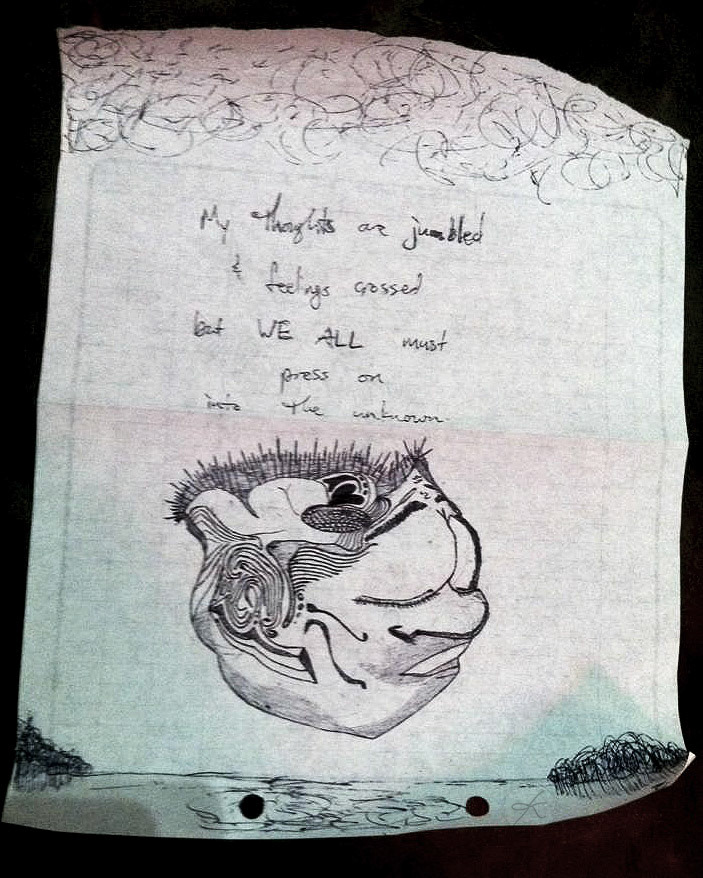 My thoughts are jumbled
& feelings crossed
but WE ALL must
press on
into the unknown.